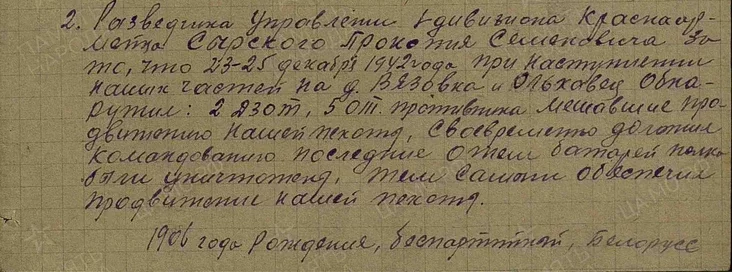 2. Разведчика Управлении 1 дивизиона Красноар-
мейца Сырского Прокопия Семеновича за
то, что 23-25 декабря 1942 года при наступлении
наших частей на д. Вязовка и Ольховец обна-
ружил: 2 ДЗОТ, 5 ОТ. противника мешавшие про-
движению нашей пехоты, своевременно доложил
командованию последние огнем батарей полка
были уничтожены, тем самым обеспечил
продвижение нашей пехоты.
1906 года рождения, беспартийный, Белорусс